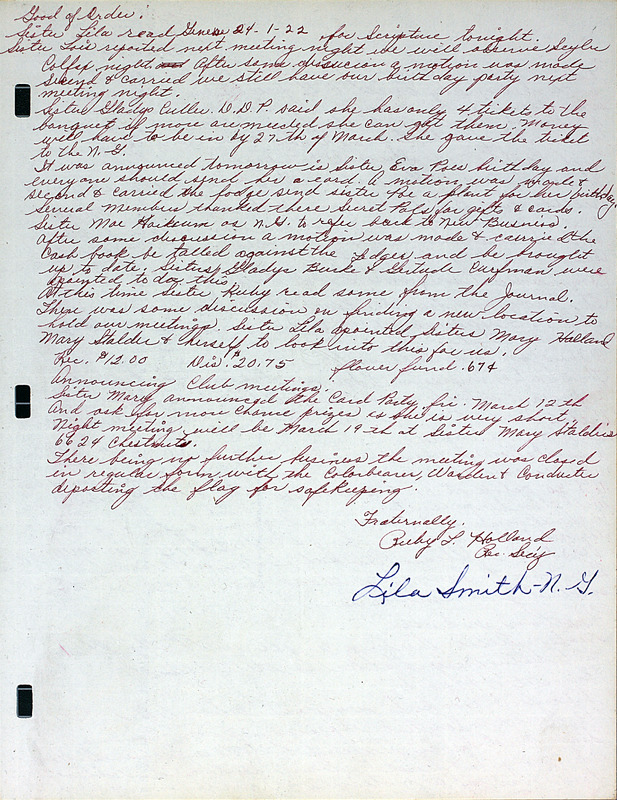 Good of Order!
Sister Lila read Genesis 24-1-22 for Scripture tonight.
Sister Lois reported next meeting night we will observe Scyler
Colfex night. After some disscucion a motion was made
Second & carried we still have our birthday party next
meeting night.
Sister Gladys Culler D.D.P. said she has only 4 tickets to the
banquet if more are needed she can get them. Money
will have to be in by 27th of March. She gave the ticket
to the N.G.
It was announced tomorrow is Sister Eva Poes birthday and
everyone should send her a card. A motion was made &
second & carried the lodge send sister Poe a plant for her birthday.
Several members thanked there Secret Pals for gifts & cards.
Sister Mae as N.G. to refer back to New Business
After some discussion a motion was made & carried the
Cash book be talled against the ledges and be brought
up to date. Sisters Gladys Burke & Gertrude Curfman were
apointed to do this.
At this time Sister Ruby read some from the Journal.
There was some discussion on finding a new location to
hold our meetings. Sister Lila apointed Sisters Mary Holland
Mary Stalder & herself to look into this for us.
Rec. $12.00 Dis. $20.75 flower fund .67¢
Announcing Club meetings!
Sister Mary announced the Card Party fri. March 12th
and ask for more chance prizes as she is very short,
Night meeting will be March 19th at Sister Mary Stalders
6624 Chestnut.
There being no further business the meeting was closed
in regular form with the Colorbearer, Warden & Conductor
deposting the flag for safekeeping.
Fraternally.
Ruby L. Holland
Rec. Sec'y
Lila Smith-N.G.